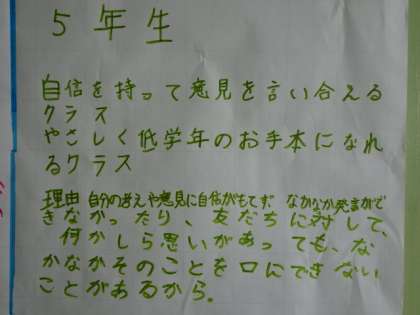 5年生
自信を持って意見を言い合える
クラス
やさしく低学年のお手本になれ
るクラス
理由 自分の考えや意見に自信がもてず、なかなか発言がで
きなかったり、友だちに対して、
何かしら思いがあっても、な
かなかそのことを口にできない
ことがあるから。